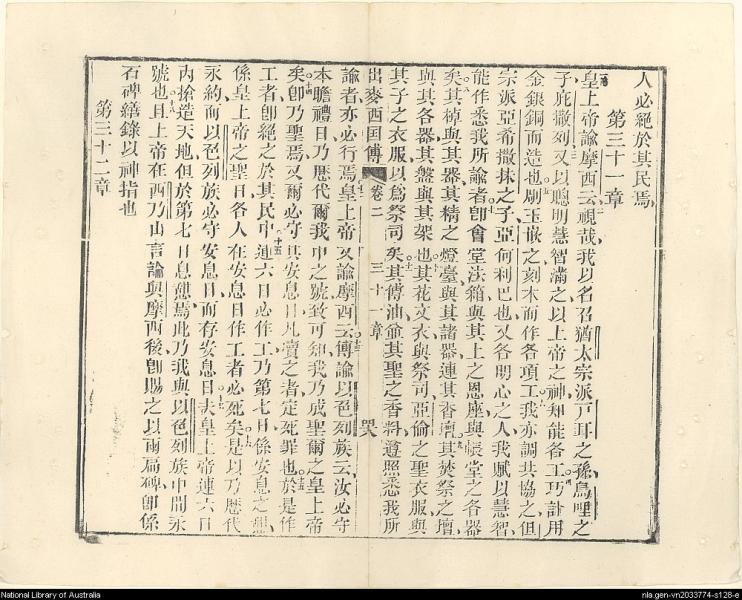 人必絕於其民焉
第三十一章
皇上帝諭摩西云視哉我以名召猶太宗派戶耳之孫烏哩之
子庇撒列又以聰明慧智滿之以上帝之神知能各工巧計用
金銀銅而造也刷玉嵌之刻木而作各項工我亦調共協之但
宗派亞希撒抹之子亞何利巴也又各明心之人我賦以慧智
能作悉我所諭者卽會堂法箱與其上之恩座與帳堂之各器
矣其棹與其器其精之燈臺與其諸器連其香壇其焚祭之壇
與其各器其盤與其架也其花文衣與祭司亞倫之聖衣服與
其子之衣服以為祭司矣其傅油並其聖之香料遵照悉我所
出麥西國傳 卷二 三十一章
諭者亦必行焉皇上帝又諭摩西云傳諭以色列族云汝必守
本瞻禮日乃歷代爾我中之號致可知我乃成聖爾之皇上帝
矣卽乃聖焉又爾必守其安息日凡瀆之者定死罪也於是作
工者卽絕之於其民中連六日必作工乃第七日係安息之
係皇上帝之聖日各人在安息日作工者必死矣是以乃歷代
永約而以色列族必守安息日而存安息日夫皇上帝連六日
內搶造天地但於第七日息憇焉此乃我與以色列族中間永
號也且上帝在西乃山言諭與摩西後卽賜之以兩扁碑卽係
石碑繕錄以神指也
第三十二章
National Library of Australia
nla.gen-vn2033774-s128-e